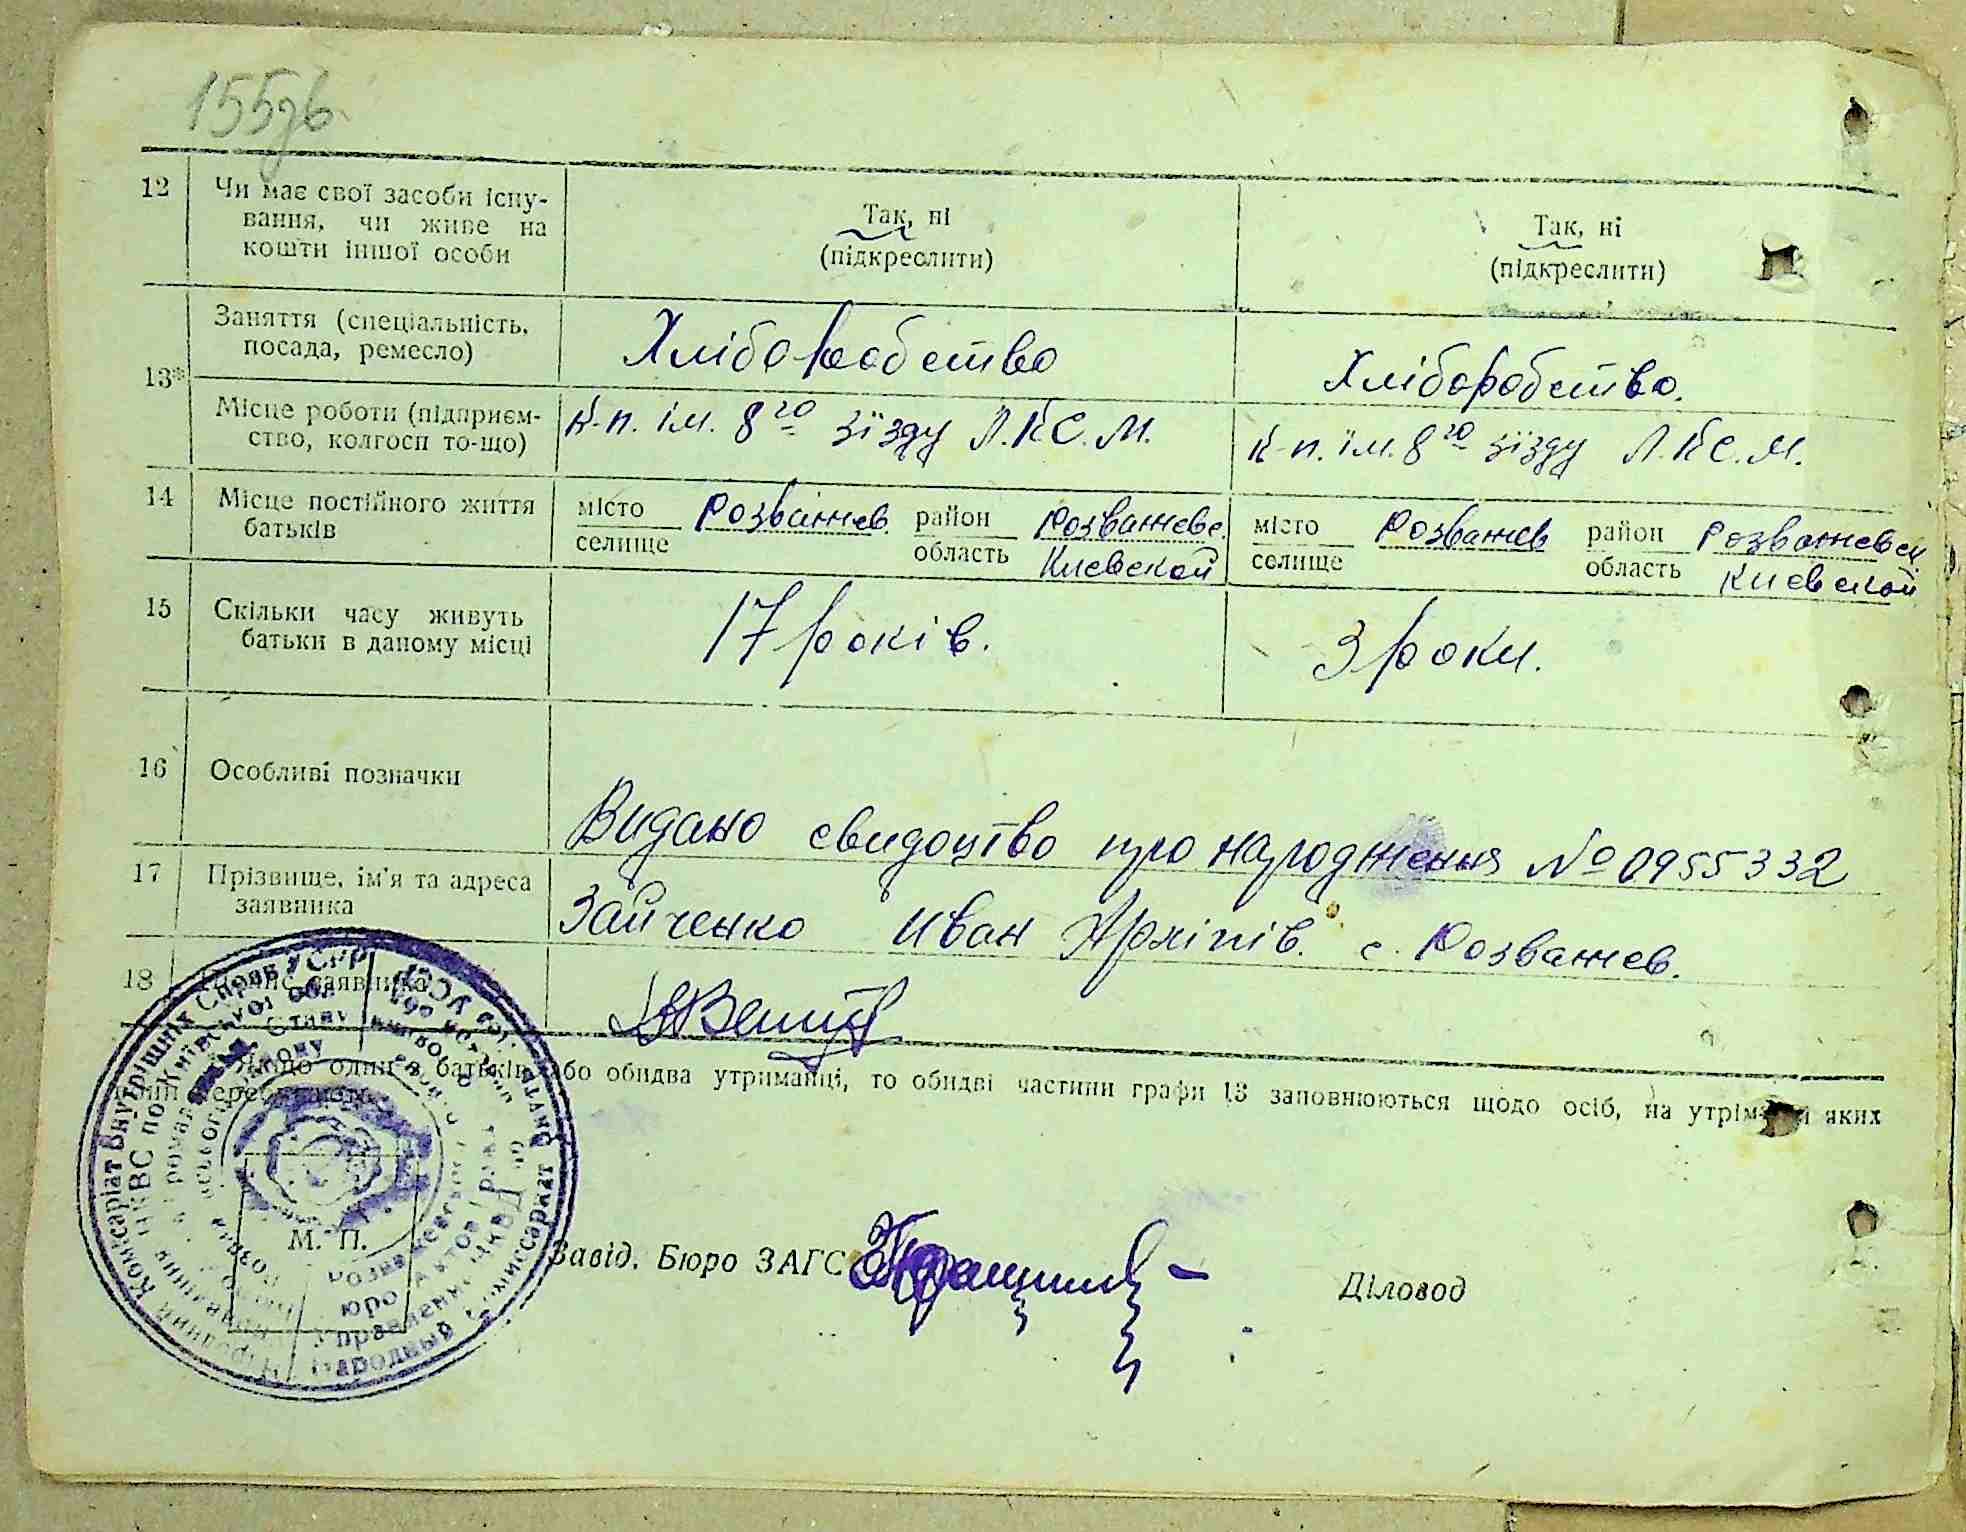 155зв.
12 Чи має свої засоби існу-
вання, чи живе на
кошти іншої особи
Так, ні
(підкреслити)
Так, ні
(підкреслити)
13*
Заняття (спеціальність,
посада, ремесло)
Хліборобство
Хліборобство.
Місце роботи (підприєм-
ство, колгосп то-що)
К-п. ім. 8го зїзду Л.К.С.М.
К-п. ім. 8го зїзду Л.К.С.М.
14 Місце постійного життя
батьків
місто Розважев район Розважевс.
селище область Киевской
місто Розважев район Розважевск
селище область Киевской
15 Скільки часу живуть
батьки в даному місці
17 років.
3 роки.
16 Особливі позначки
Видано свидоцтво про народження № 0955332
17 Прізвище, ім'я та адреса
заявника
Зайченко Иван Архіпів. с. Розважев.
18 Підпис заявника
Якщо один з батьків або обидва утриманці, то обидві частини графи 13 заповнюються щодо осіб, на утриманні яких
М. П.
Завід. Бюро ЗАГС
Діловод
Народний Комісаріат Внутрішніх Справ УСРР